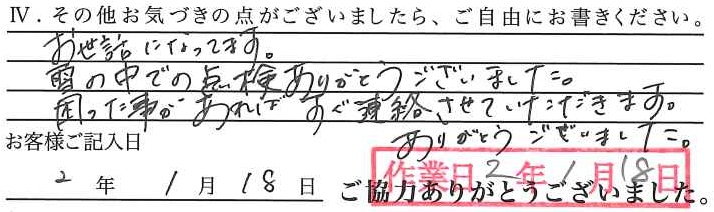 Ⅳ．その他お気づきの点がございましたら、ご自由にお書きください。
お世話になってます。
雪の中での点検ありがとうございました。
困った事があればすぐ連絡させていただきます。
ありがとうございました。
お客様ご記入日
2 年 1 月 18 日
作業日 2 年 1 月 18 日
ご協力ありがとうございました。